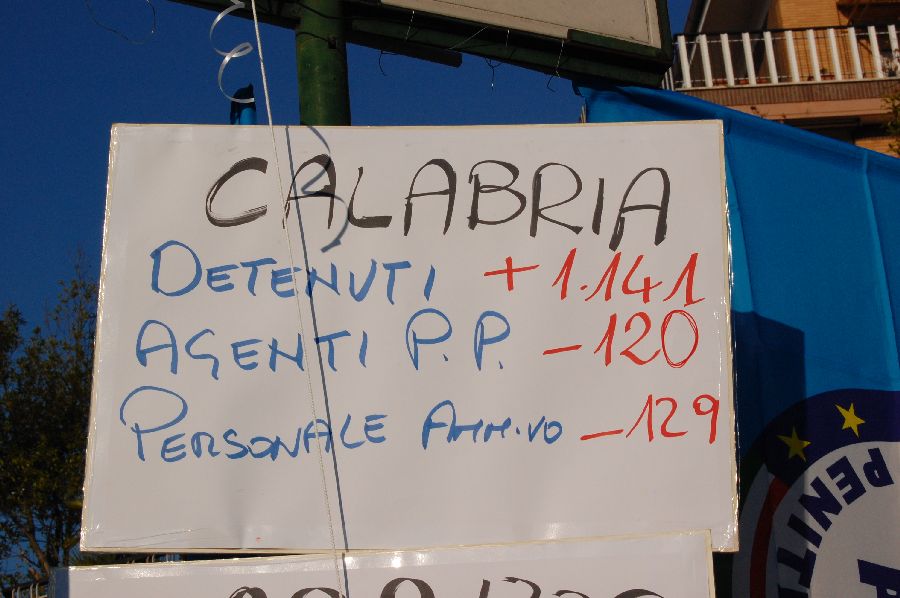 CALABRIA
DETENUTI +1.141
AGENTI P.P. -120
PERSONALE AMM.VO -129
PENIT